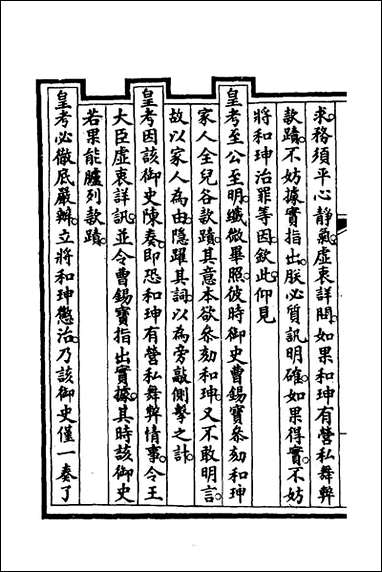 求務須平心靜氣虛衷詳問如果和珅有營私舞弊
款蹟不妨據實指出朕必質訊明確如果得實不妨
將和珅治罪等因欽此仰見
皇考至公至明纖微畢照彼時御史曹錫寶叅劾和珅
家人全兒各款蹟其意本欲叅劾和珅又不敢明言
故以家人為由隱躍其詞以為旁敲側擊之計
皇考因該御史陳奏即恐和珅有營私舞弊情事令王
大臣虛衷詳訊並令曹錫寶指出實據其時該御史
若果能臚列款蹟
皇考必徹底嚴辦立將和珅懲治乃該御史僅一奏了